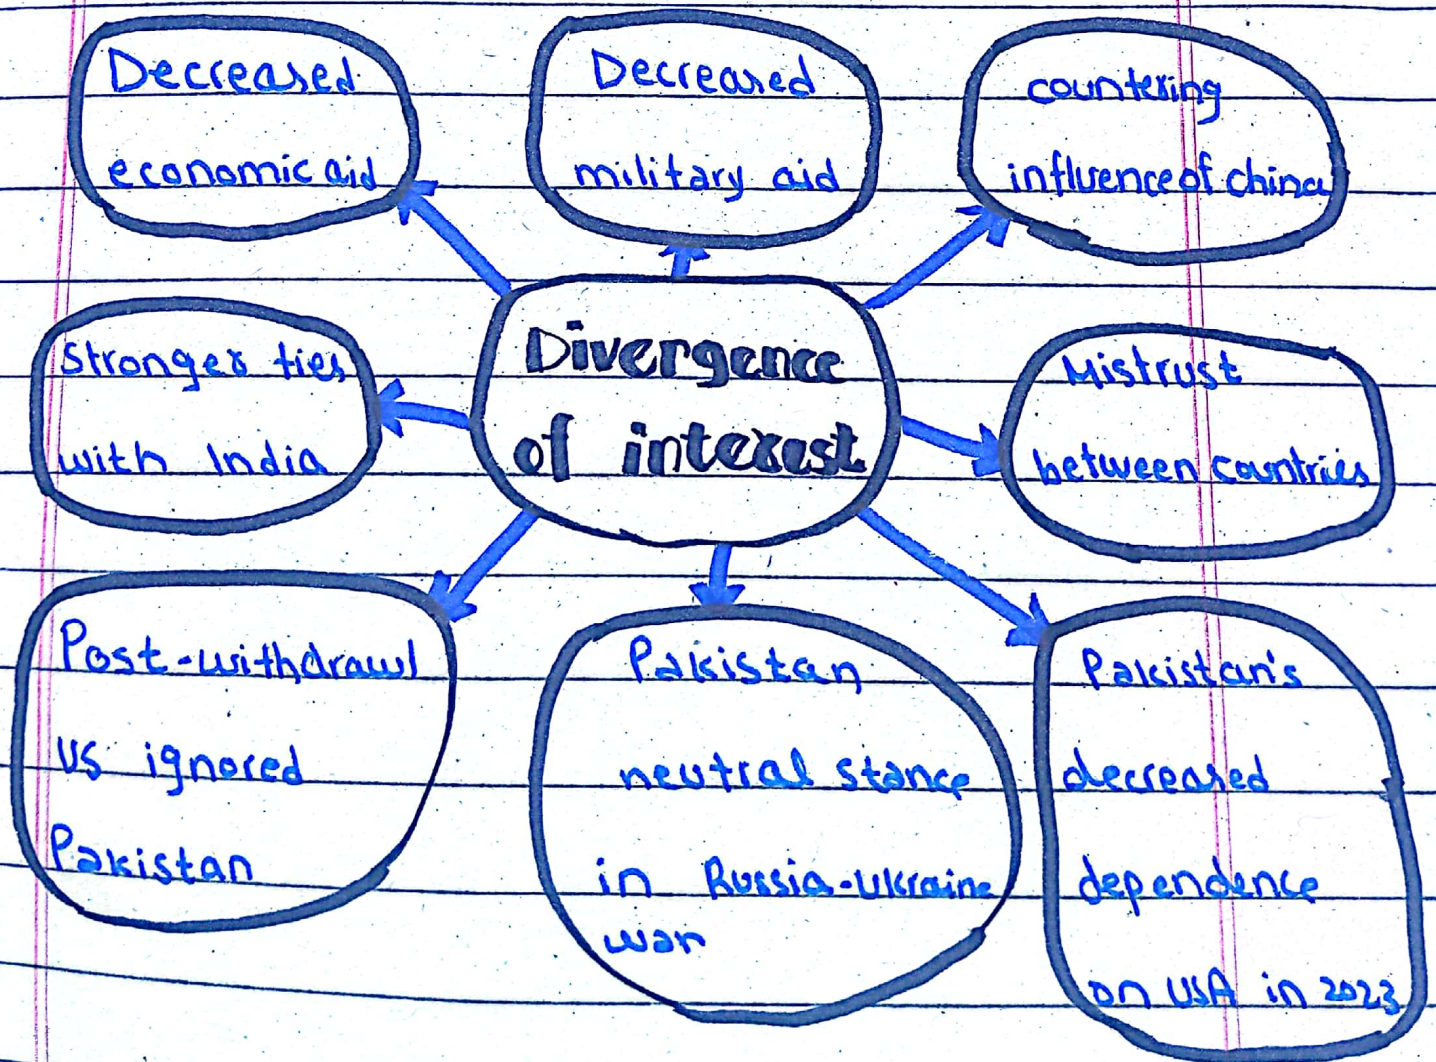 Decreased
economic aid
Decreased
military aid
countering
influence of china
Stronger ties
with India
Divergence
of interest
Mistrust
between countries
Post-withdrawl
US ignored
Pakistan
Pakistan
neutral stance
in Russia-Ukraine
war
Pakistan's
decreased
dependence
on USA in 2023